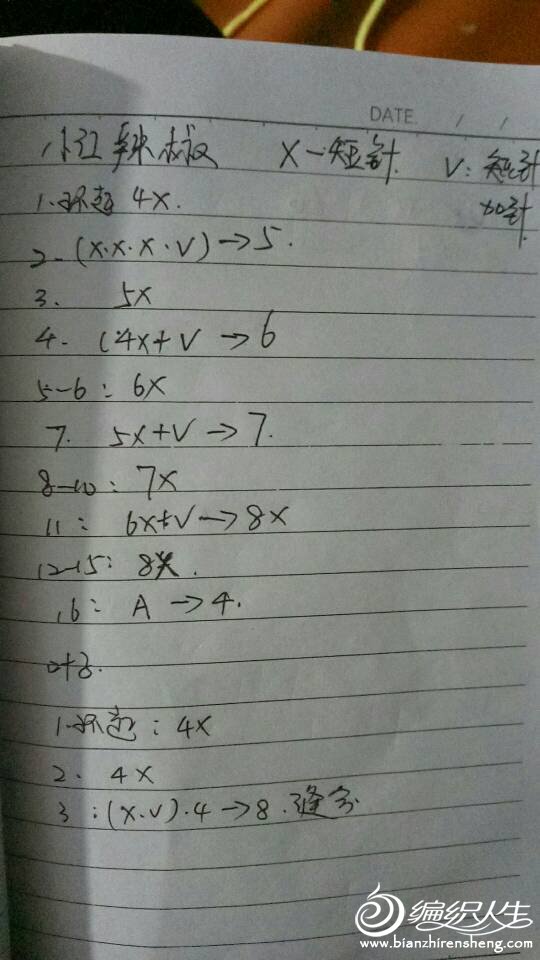 DATE / /
小红辣椒 X—短针 V:短针
加针
1.环起 4X.
2-(X.X.X.V)→5.
3. 5X
4. (4X+V→6
5-6:6X
7. 5X+V→7.
8-10:7X
11: 6X+V→8X
12-15:8X.
16: A→4.
叶子.
1.环起:4X
2. 4X
3:(X.V).4→8.缝合
编织人生
www.bianzhirensheng.com